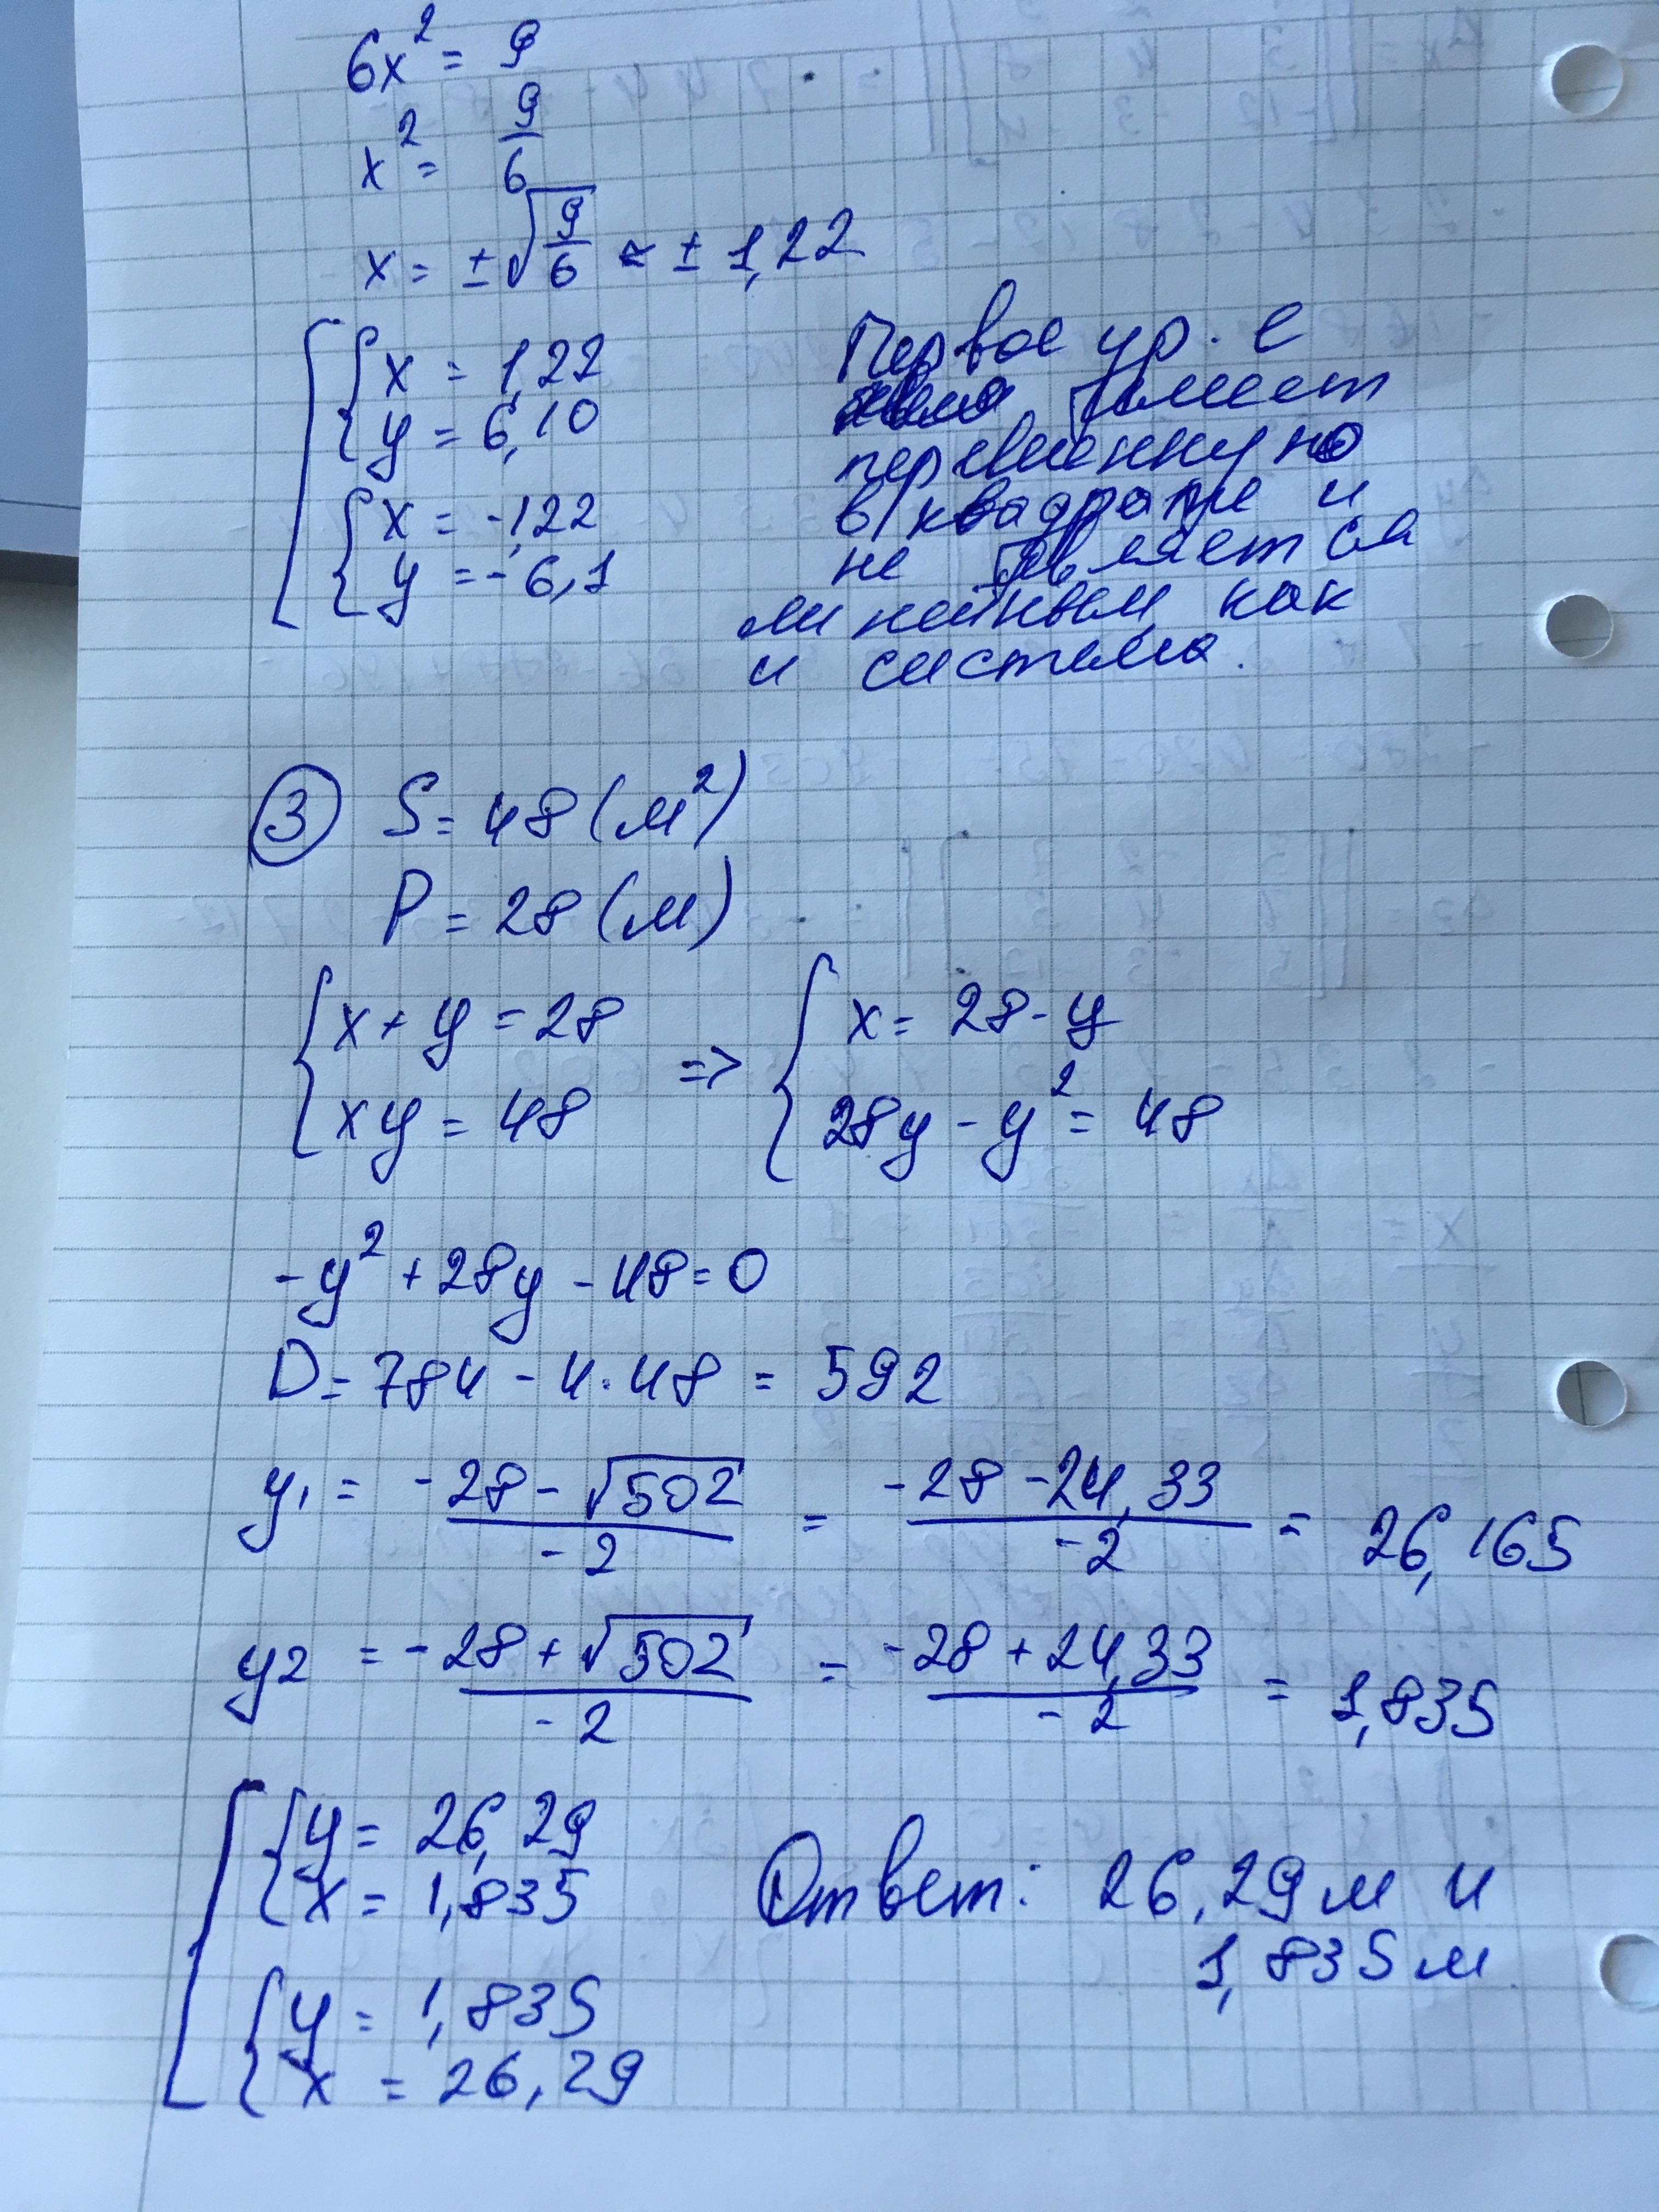 6x² = 9
x² = 9/6
x = ±√(9/6) ≈ ± 1,22
{ x = 1,22
{ y = 6,10
{ x = -1,22
{ y = -6,1
Первое ур. с
имеет
переменную
в квадрате и
не является
линейным, как
и система.
③ S = 48 (м²)
P = 28 (м)
{ x + y = 28 => { x = 28 - y
{ xy = 48 { 28y - y² = 48
-y² + 28y - 48 = 0
D = 784 - 4·48 = 592
y1 = (-28 - √502)/(-2) = (-28 - 24,33)/(-2) = 26,165
y2 = (-28 + √502)/(-2) = (-28 + 24,33)/(-2) = 1,835
{ y = 26,29
{ x = 1,835
{ y = 1,835
{ x = 26,29
Ответ: 26,29 м и
1,835 м.